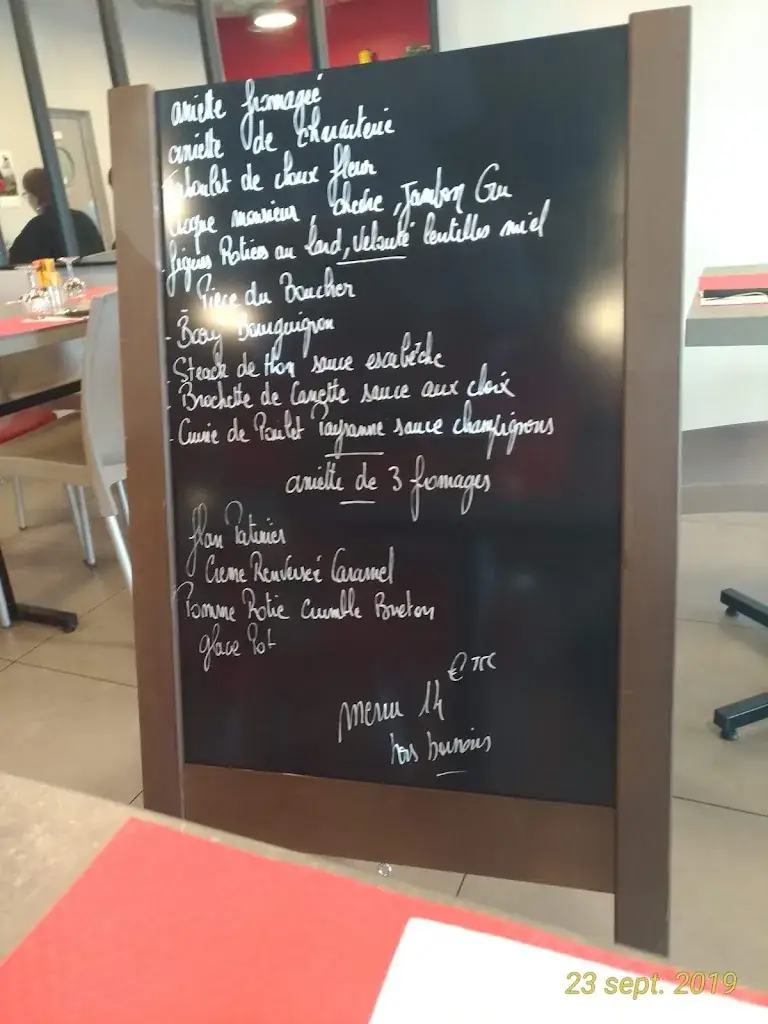 assiette fromagée
assiette de charcuterie
Taboulet de choux fleur
Croque monsieur, chèvre, Jambon Cru
- Figues Roties au lard, Velouté lentilles miel
Pièce du Boucher
- Boeuf Bourguignon
- Steack de thon sauce escabèche
- Brochette de Canette sauce aux choix
- Cuisse de Poulet Paysanne sauce champignons
assiette de 3 fromages
flan Patissier
Crème Renversée Caramel
Pomme Rotie Crumble Breton
glace Pot
€ TTC
menu 14
hors boissons
23 sept. 2019